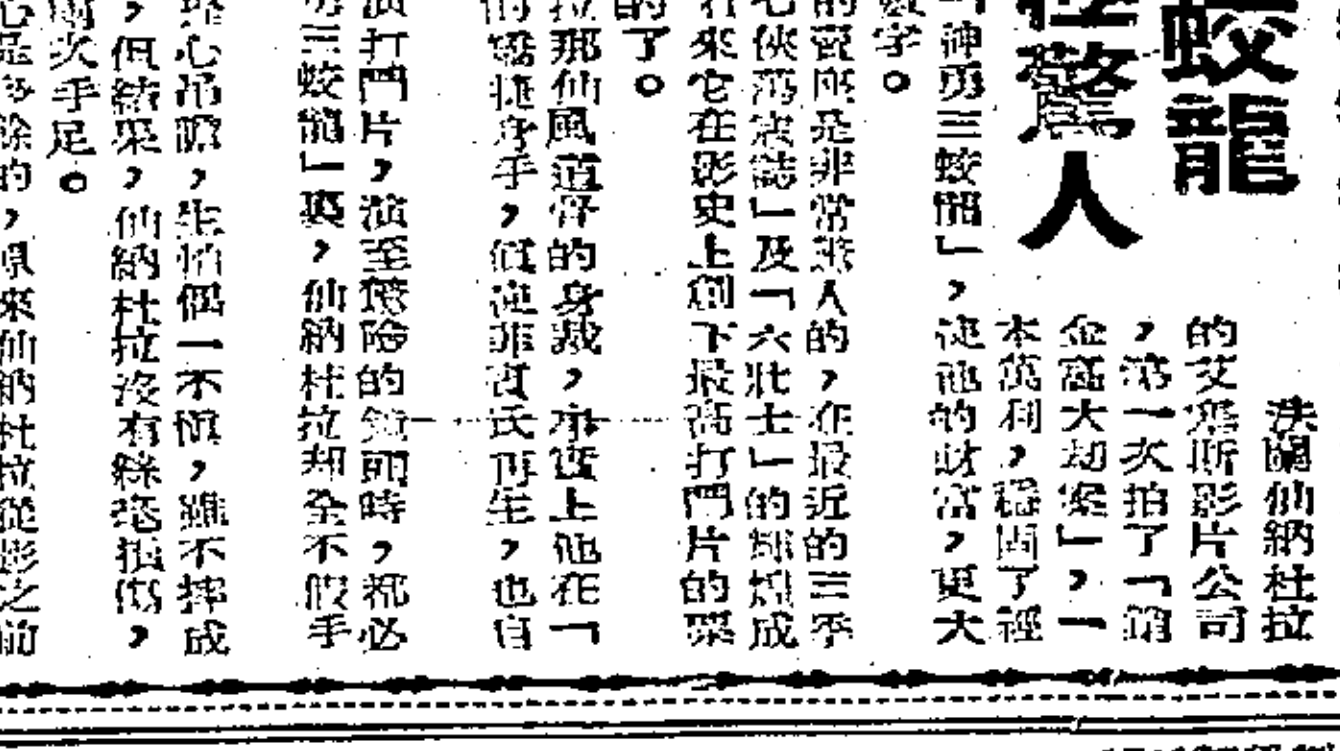 蛟龍
驚人
法蘭仙納杜拉
的艾瑪斯影片公司
，第一次拍了「銷
金窩大劫案」，一
本萬利，穩固了經
神勇三蛟龍」，從他的財富，更大
數字。
的賣座是非常驚人的，在最近的三季
七俠蕩寇誌」及「六壯士」的輝煌成
看來它在影史上創下最高打鬥片的票
的了。
拉那仙風道骨的身裁，事實上他在「
的矯捷身手，假使菲賓氏再生，也自
演打鬥片，演至危險的鏡頭時，都必
勇三蛟龍」裏，仙納杜拉却全不假手
提心吊膽，生怕偶一不慎，雖不摔成
，但結果，仙納杜拉沒有絲毫損傷，
兩次手足。
心是多餘的，原來仙納杜拉從影之前